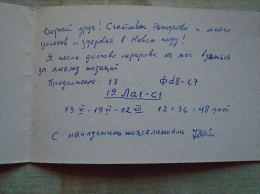 Дорогой друг! Счастливых Рождества и много
успехов и здоровья в Новом году!
Я после долгого перерыва не мог взяться
за анализ позиций.
Продолжаю: 18. ... Фd8-c7
19 Ла1-с1
13 VI - 19 VI - 12 XII 12 + 36 = 48 дней
С наилучшими пожеланиями